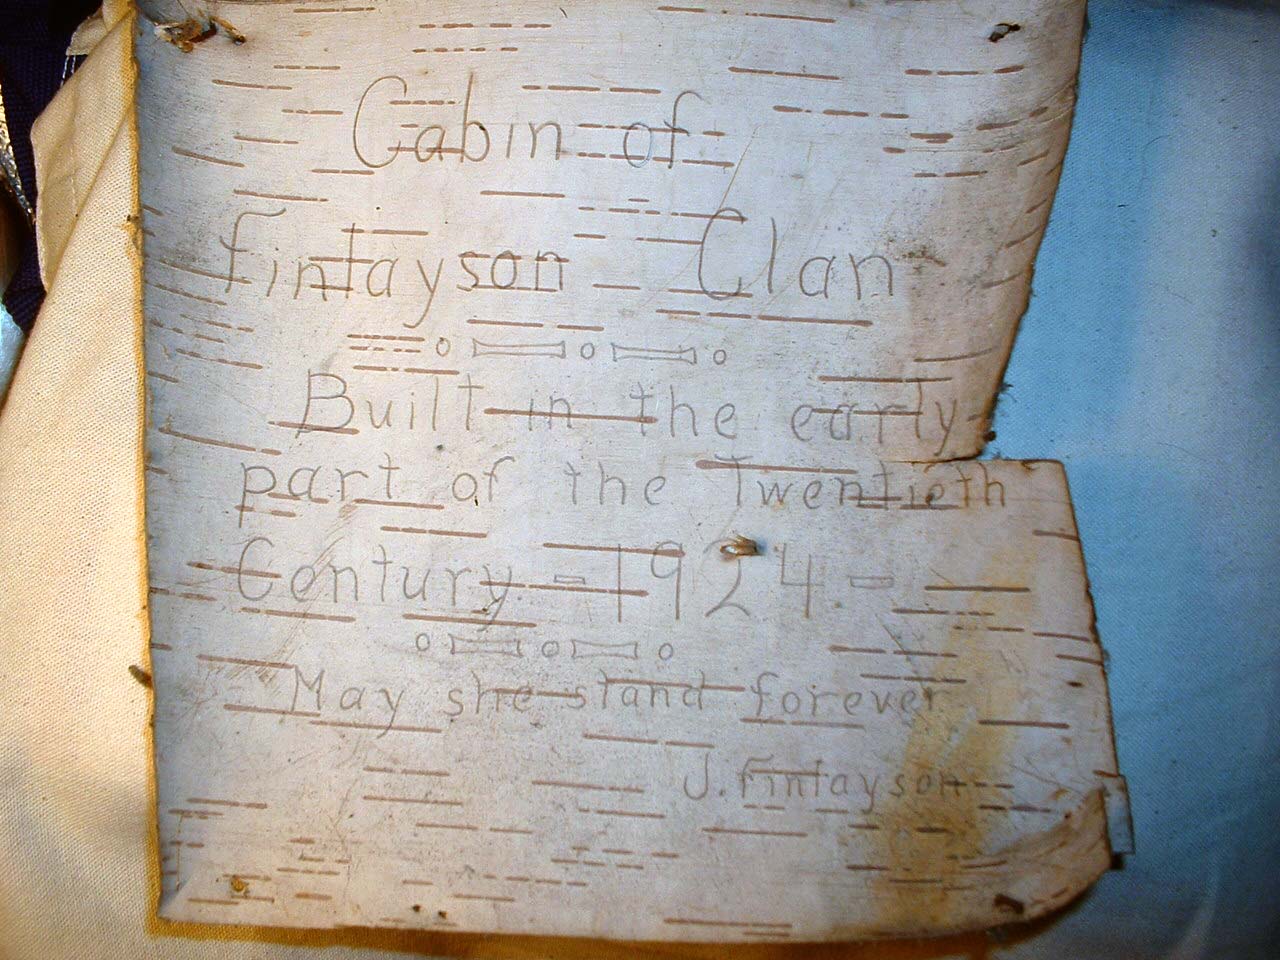 Cabin of
Finlayson Clan
Built in the early
part of the Twentieth
Century - 1924 -
May she stand forever
J. Finlayson